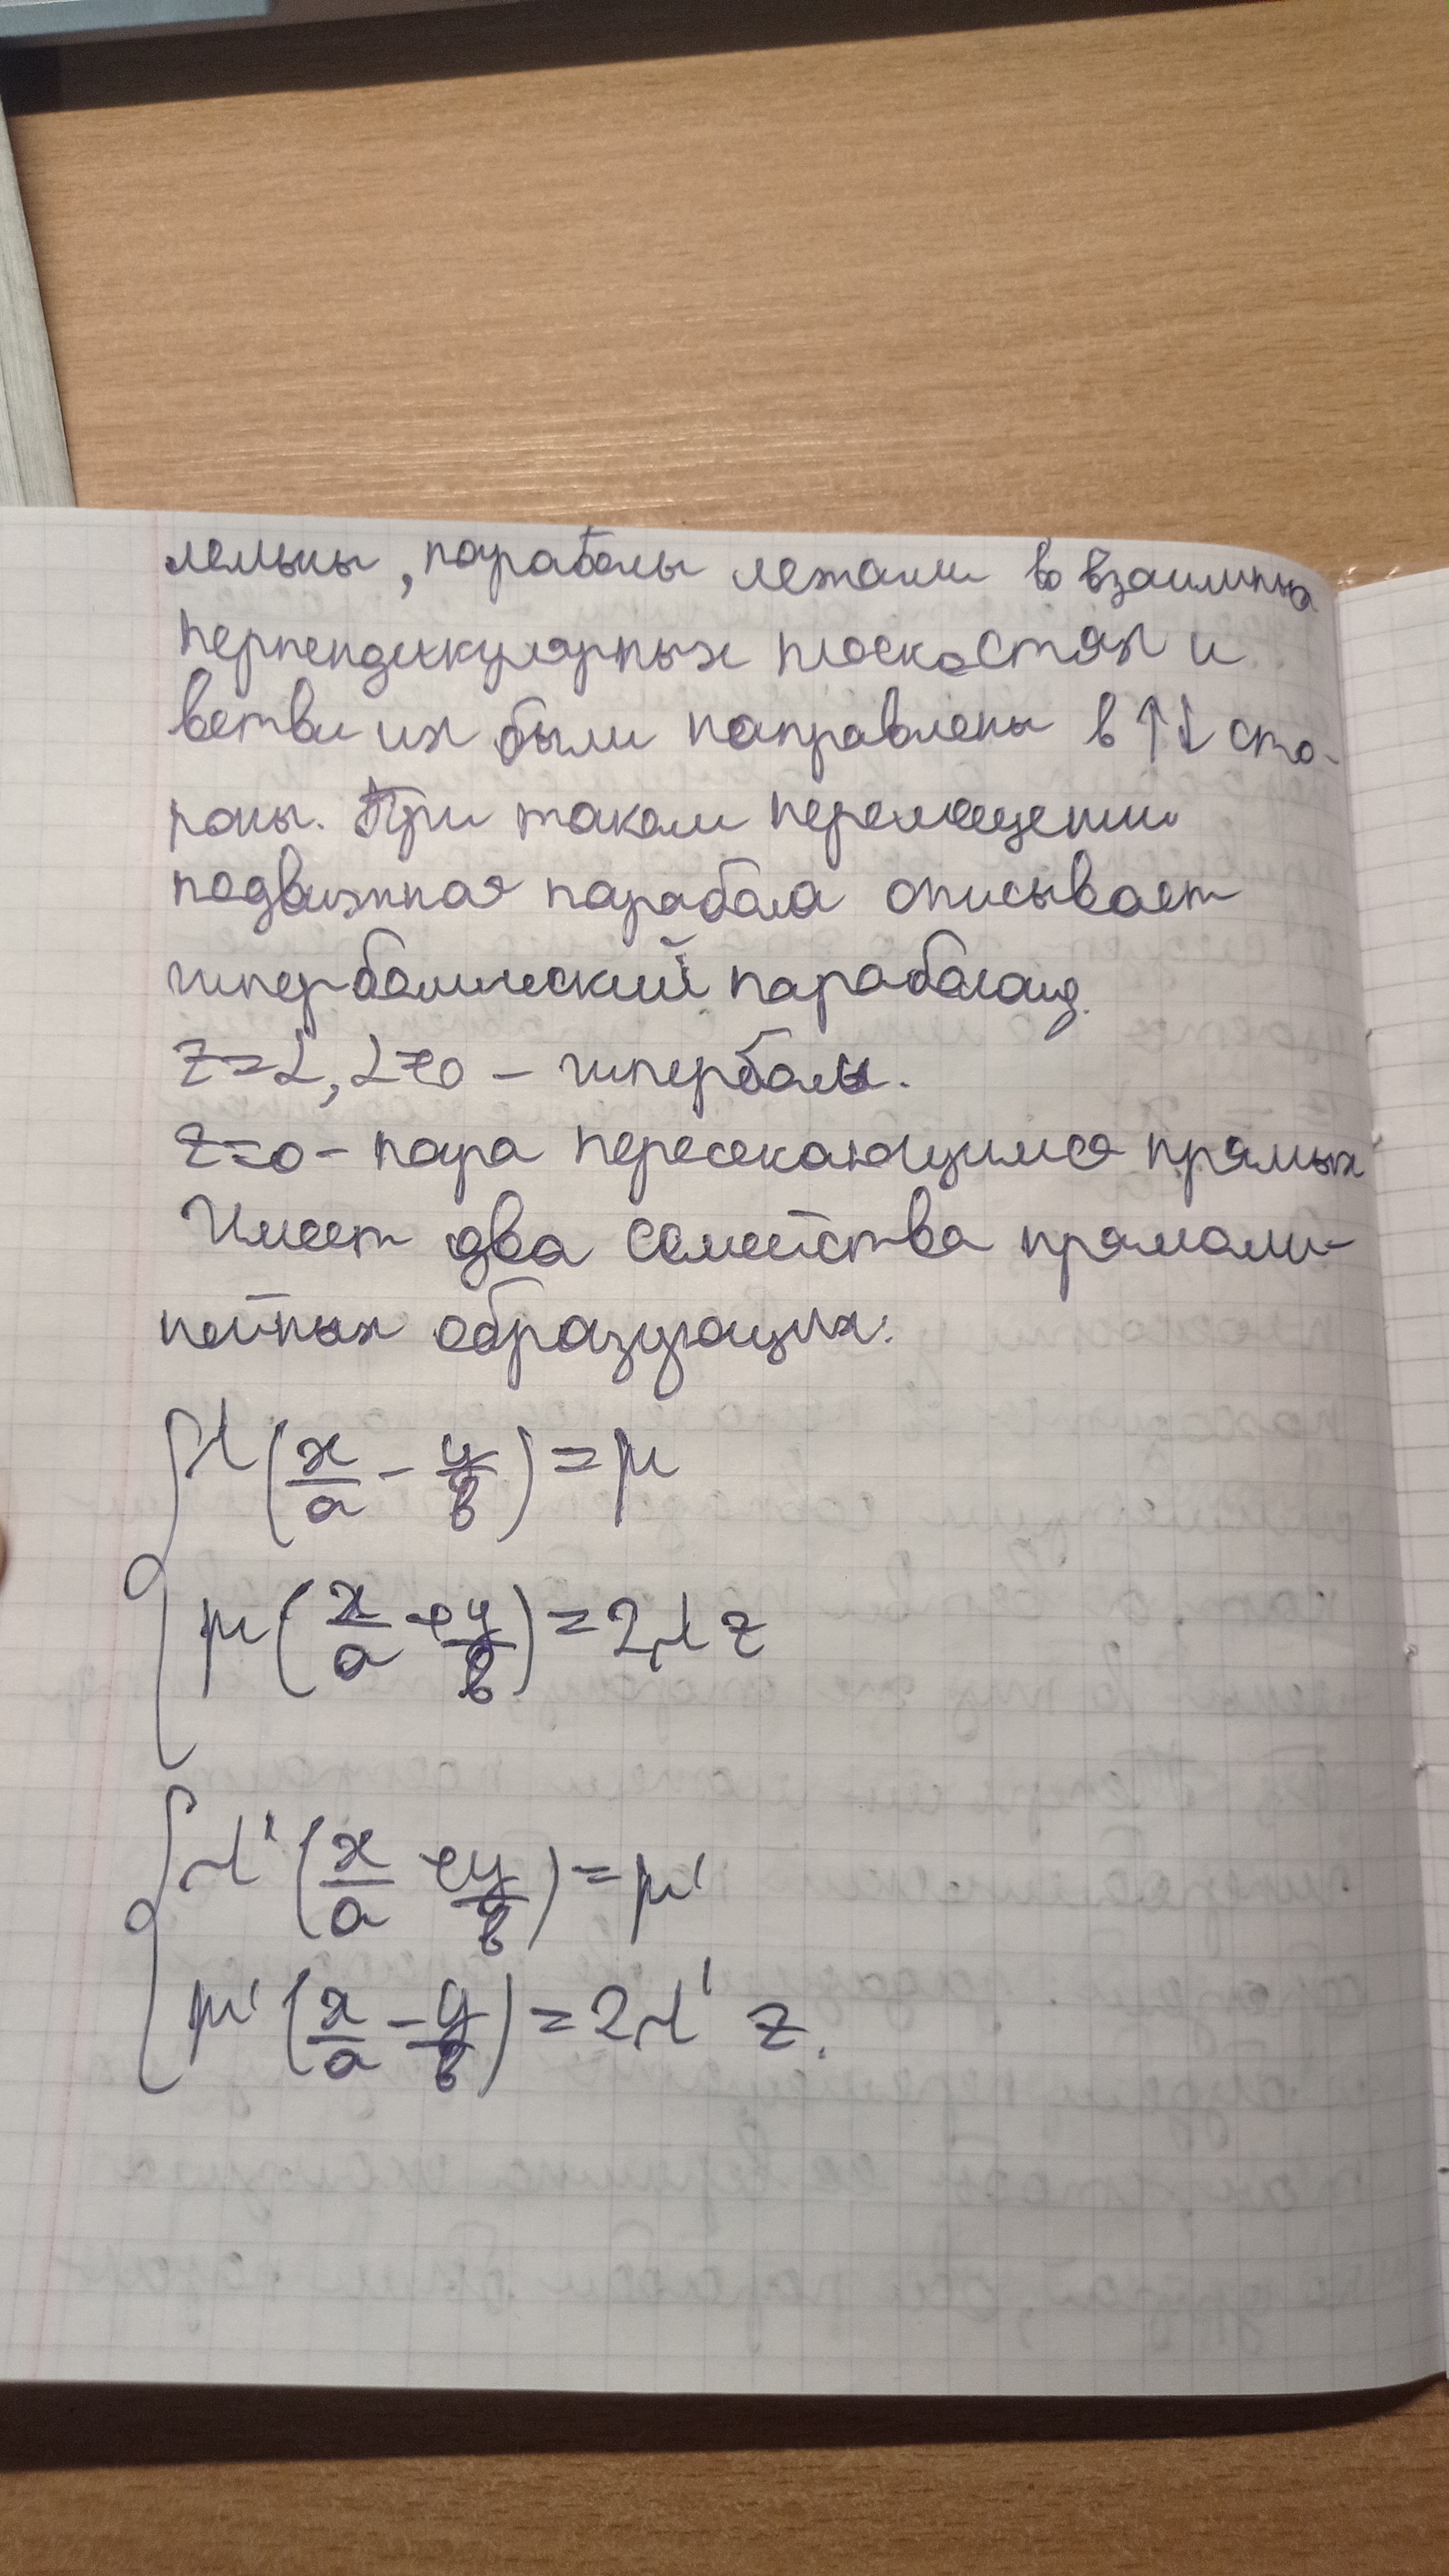 лельны, параболы лежали во взаимно
перпендикулярных плоскостях и
ветви их были направлены в ↑↓ сто-
роны. При таком перемещении
подвижная парабола описывает
гиперболический параболоид.
z=L, L≠0 – гиперболы.
z=0 – пара пересекающимся прямых
Имеет два семейства прямоли-
нейных образующих:
λ(x/a - y/b) = μ
μ(x/a + y/b) = 2λz
λ'(x/a + y/b) = μ'
μ'(x/a - y/b) = 2λ'z.